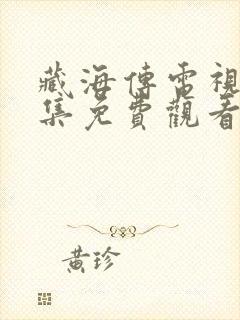 藏海傳電視
集免費觀看
黃珍